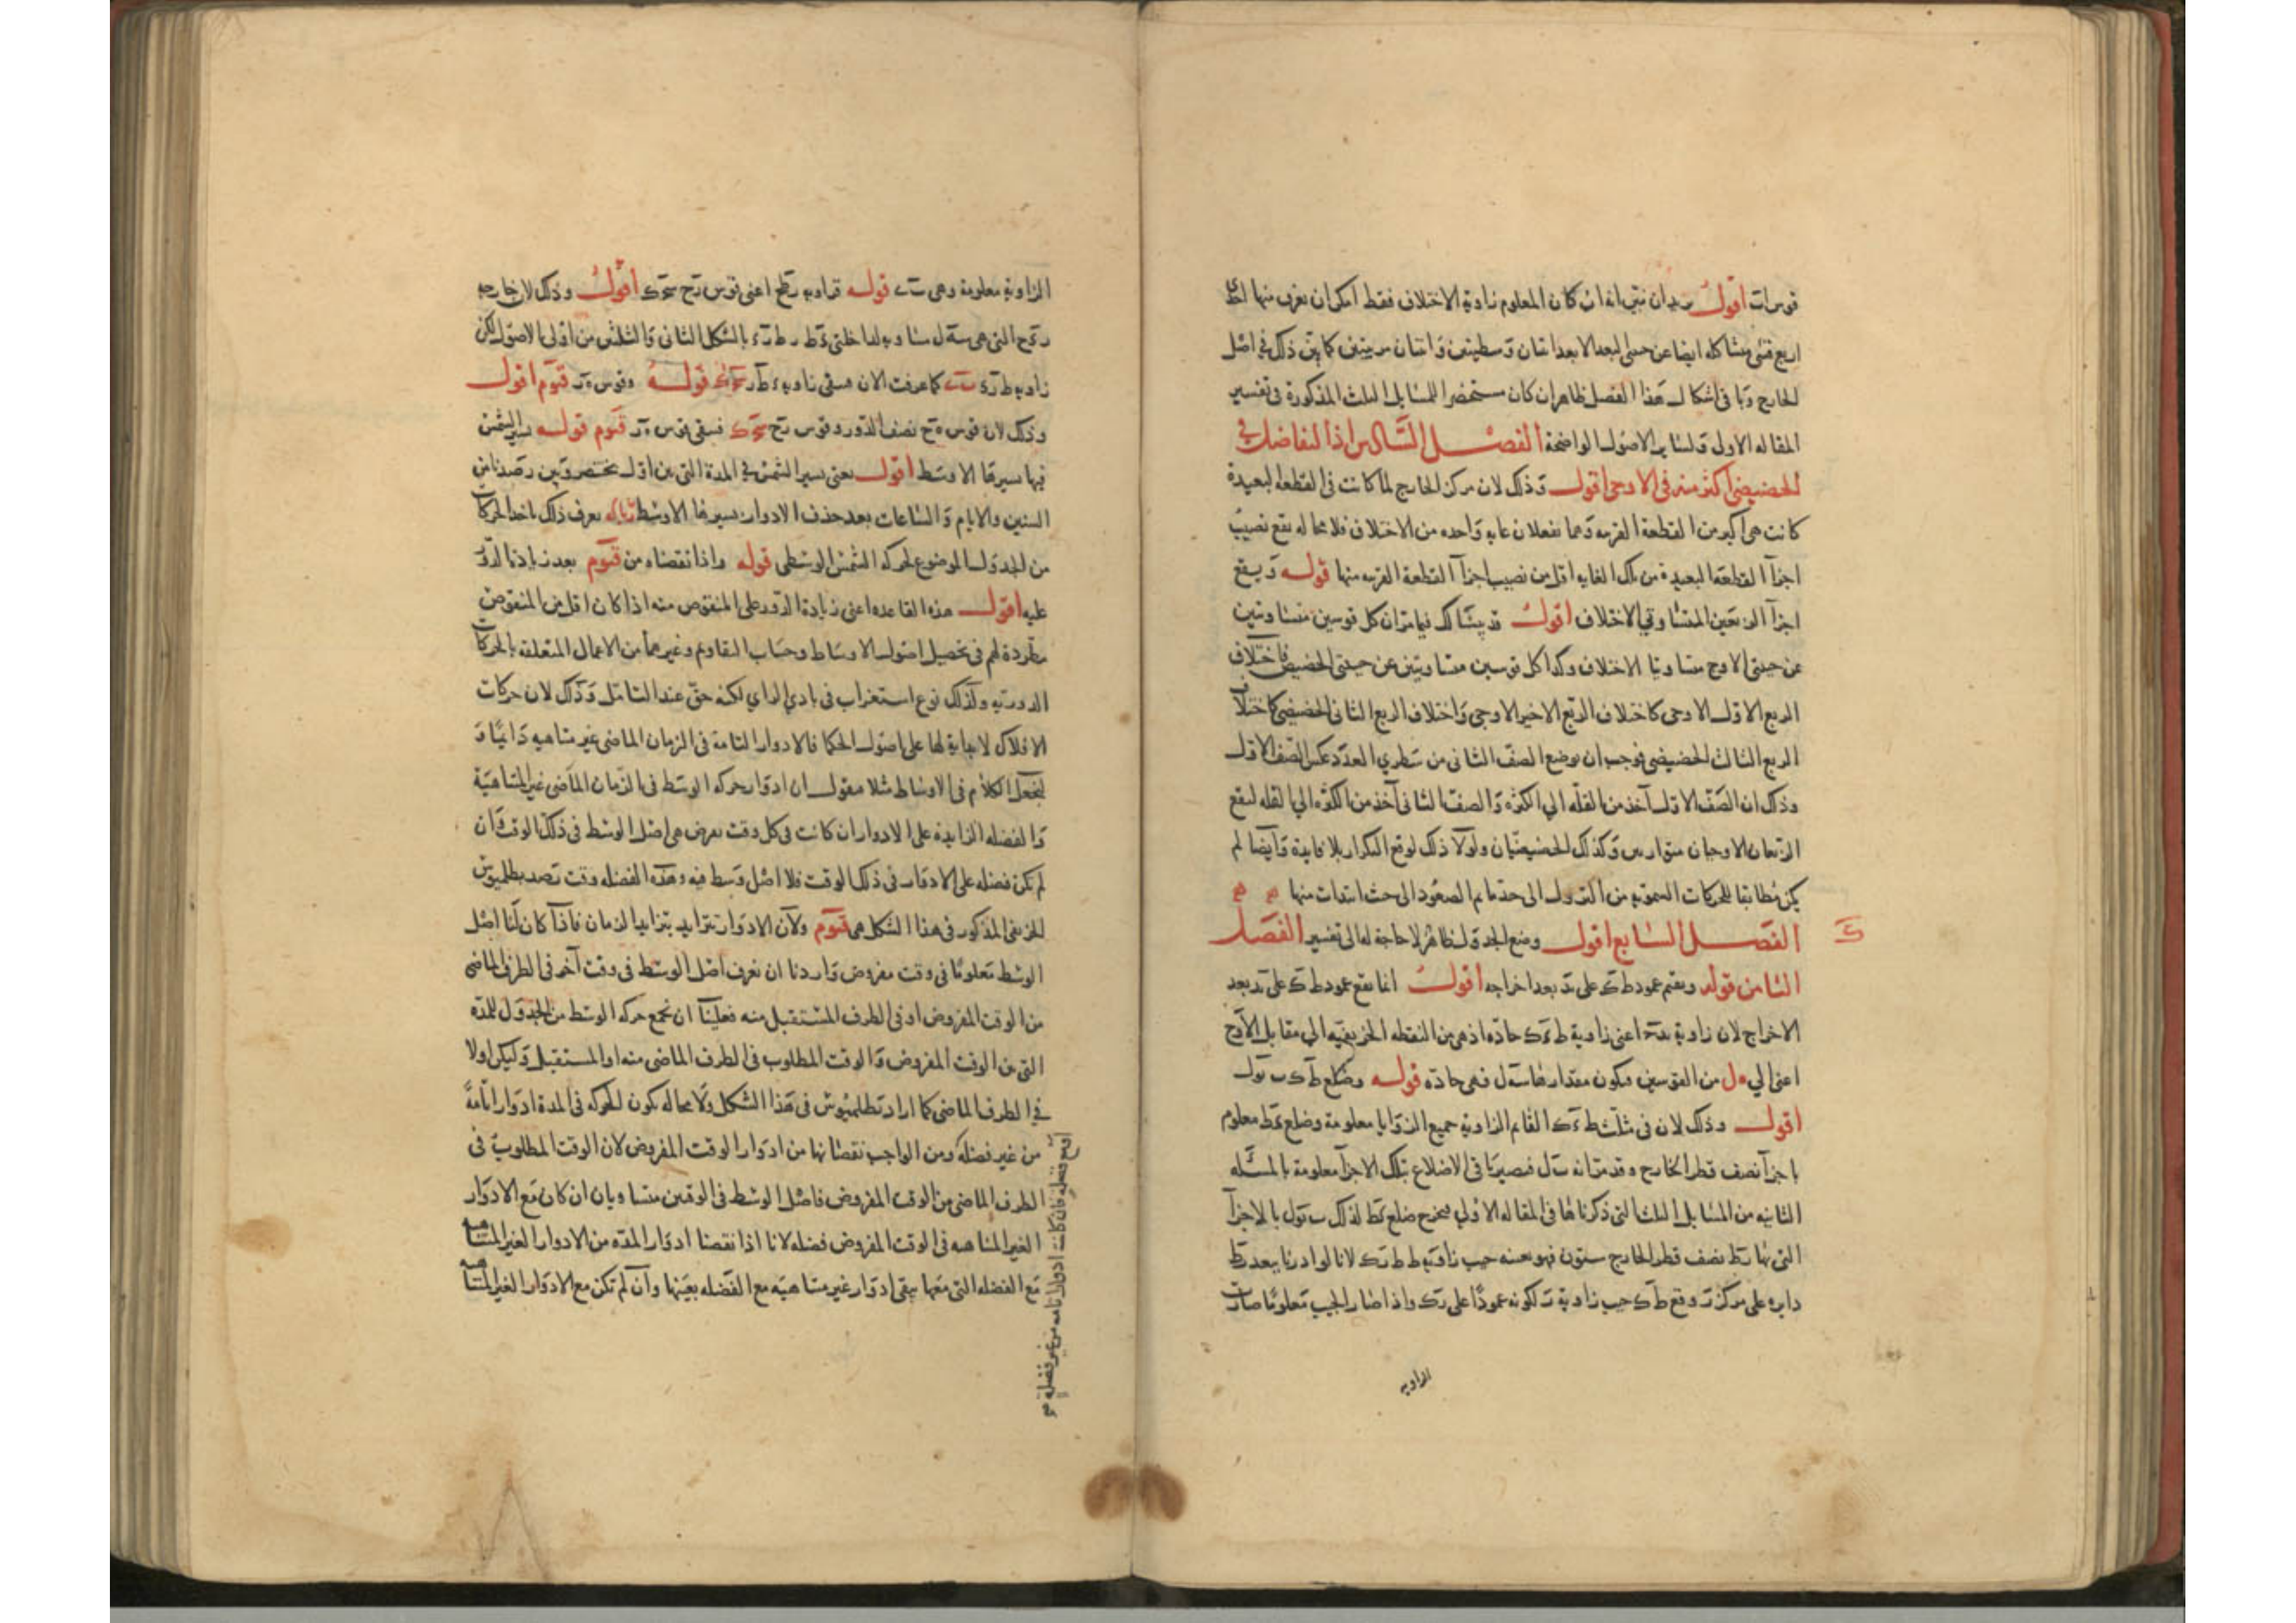 اقول يريد ان نبين انه ان كان المعلوم زاوية الاختلاف فقط امكن ان نعرف منها
اربع قسى متشاكله ايضا عن جنبتى البعد الابعد اثنتان وسطيتين واثنتان مرييتين كما بين ذلك فى اصل
الخارج وما فى اشكال هذا الفصل ظاهر ان كان مستحضرا للمسايل الثلث المذكورة فى تفسير
المقاله الاولى ولساير الاصول الواضحة الفصل السادس اذ التفاضل فى
الحضيضى اكثر منه فى الاوجى اقول وذلك لان مركز الخارج لما كانت فى القطعه البعيدة
كانت هى اكبر من القطعة القريبه وهما يفعلان غايه واحده من الاختلاف فلا محاله يقع نصيب
اجزآ القطعة البعيدة من تلك الغايه اقل من نصيب اجزآ القطعة القريبه منها قوله ويقع
اجزآ الربعين المتساوتى الاختلاف اقول قد بينا لك فيما مر ان كل قوسين متساويتين
عن جنبتى الاوج متساويتا الاختلاف وكذا كل قوسين متساويتين عن جنبتى الحضيض فاختلاف
الربع الاول الاوجى كاختلاف الربع الاخير الاوجى واختلاف الربع الثانى الحضيضى كاختلاف
الربع الثالث الحضيضى فوجب ان يوضع الصف الثانى من سطرى العدد عكس الصف الاول
وذلك ان الصف الاول آخذ من القلة الى الكثره والصف الثانى آخذ من الكثره الى القله ليقع
الربعان الاوجيان متوازيين وكذلك الحضيضيان ولولا ذلك لوقع التكرار بلا فايدة وايضا لم
يكن مطابقا للحركات السمويه من النزول الى حد ما ثم الصعود الى حيث ابتدات منها
الفصل السابع اقول وضع الجدول ظاهر لا حاجة له الى تفسير الفصل
الثامن قوله ونقيم عمود طك على بعد اخراجه اقول انما يقع عمود طك على بعد
الاخراج لان زاوية اعنى زاوية حاده اذ هى من النقطه الخريفيه الى مقابل الاوج
اعنى الى من القوسين فيكون مقدارها فهى حادة قوله وضلع طك
اقول وذلك لان فى مثلث القايم الزاوية جميع الزوايا معلومة وضلع معلوم
باجزآ نصف قطر الخارج وقد مر انه فيصير باقى الاضلاع بتلك الاجزآ معلومة بالمسئله
الثانيه من المسايل الثلث التى ذكرناها فى المقاله الاولى فيخرج ضلع لذلك بالاجزآ
التى بها نصف قطر الخارج ستون فهو بعينه جيب زاوية لانا لو ادرنا ببعد
دايره على مركز وقع طك جيب زاوية لكونه عمودا على واذا صار الجيب معلوما صارت
الزاويه
الزاوية معلومة وهى قوله فزاوية اعنى قوس اقول وذلك لان خارجه
التى هى مساوية لداخلتى بالشكل الثانى والثلثين من اولى الاصول لكن
زاوية كما عرفت الان فتبقى زاوية قوله وقوس اقول
وذلك لان قوس نصف الدور وقوس فتبقى قوس قوله سير الشمس
فيها سيرها الاوسط اقول يعنى سير الشمس فى المدة التى بين اول بختنصر وبين رصدنا من
السنين والايام والساعات بعد حذف الادوار سيرها الاوسط يعرف ذلك باخذ الحركات
من الجدول الموضوع لحركه الشمس الوسطى قوله واذا نقصناه من بعد زيادتنا الدور
عليه اقول هذه القاعده اعنى زيادة الدور على المنقوص منه اذا كان اقل من المنقوص
مطردة لهم فى تحصيل اصول الاوساط وحساب التقاويم وغيرهما من الاعمال المتعلقه بالحركات
الدورية وكذلك نوع استغراب فى بادى الراى لكنه حق عند التامل وذلك لان حركات
الافلاك لا بداية لها على اصول الحكما فالادوار التامة فى الزمان الماضى غير متناهيه دايما و
لنجعل الكلام فى الاوساط مثلا فنقول ان ادوار حركه الوسط فى الزمان الماضى غير المتناهية
والفضله الزايدة على الادوار ان كانت فى كل وقت يفرض هى اصل الوسط فى ذلك الوقت وان
لم تكن فضله على الادوار فى ذلك الوقت فلا اصل وسط فيه وهذه الفضله وقت رصد بطلميوس
الخريفى المذكور فى هذا الشكل هى ولان الادوار تتزايد بتزايد الزمان فاذا كان لنا اصل
الوسط معلوما فى وقت مفروض واردنا ان نعرف اصل الوسط فى وقت آخر فى الطرف الماضى
من الوقت المفروض او فى الطرف المستقبل منه فعلينا ان نجمع حركه الوسط من الجدول للمدة
التى بين الوقت المفروض والوقت المطلوب فى الطرف الماضى منه او المستقبل وليكن اولا
فى الطرف الماضى كما اراد بطلميوس فى هذا الشكل ولا محاله يكون للحركه فى المدة ادوارا تامة
من غير فضله ومن الواجب نقصانها من ادوار الوقت المفروض لان الوقت المطلوب فى
الطرف الماضى من الوقت المفروض فاصل الوسط فى الوقتين متساويان ان كان مع الادوار
الغير المتناهيه فى الوقت المفروض فضله لانا اذا نقصنا ادوار المدة من الادوار الغير المتناهيه
مع الفضله التى معها يبقى ادوار غير متناهية مع الفضله بعينها وان لم تكن مع الادوار الغير المتناهيه
فضلة فان كانت ادوارا تامه من غير فضلة